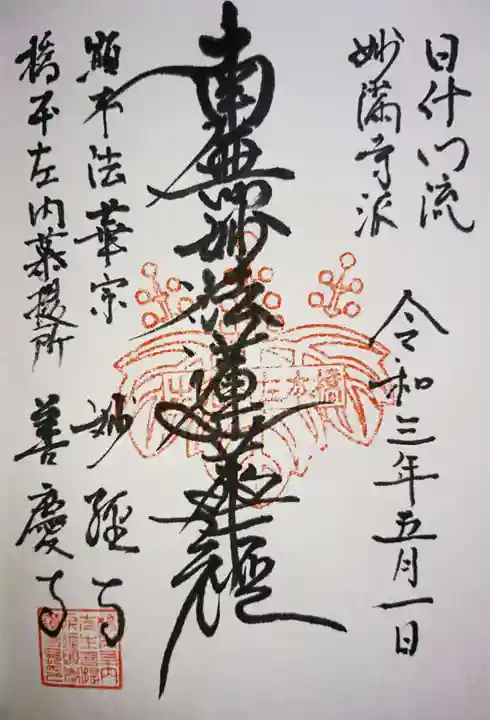 日什門流
妙満寺派
令和三年五月一日
南無妙法蓮華経
顕本法華宗 妙経寺
橋本左内菩提所 善慶寺